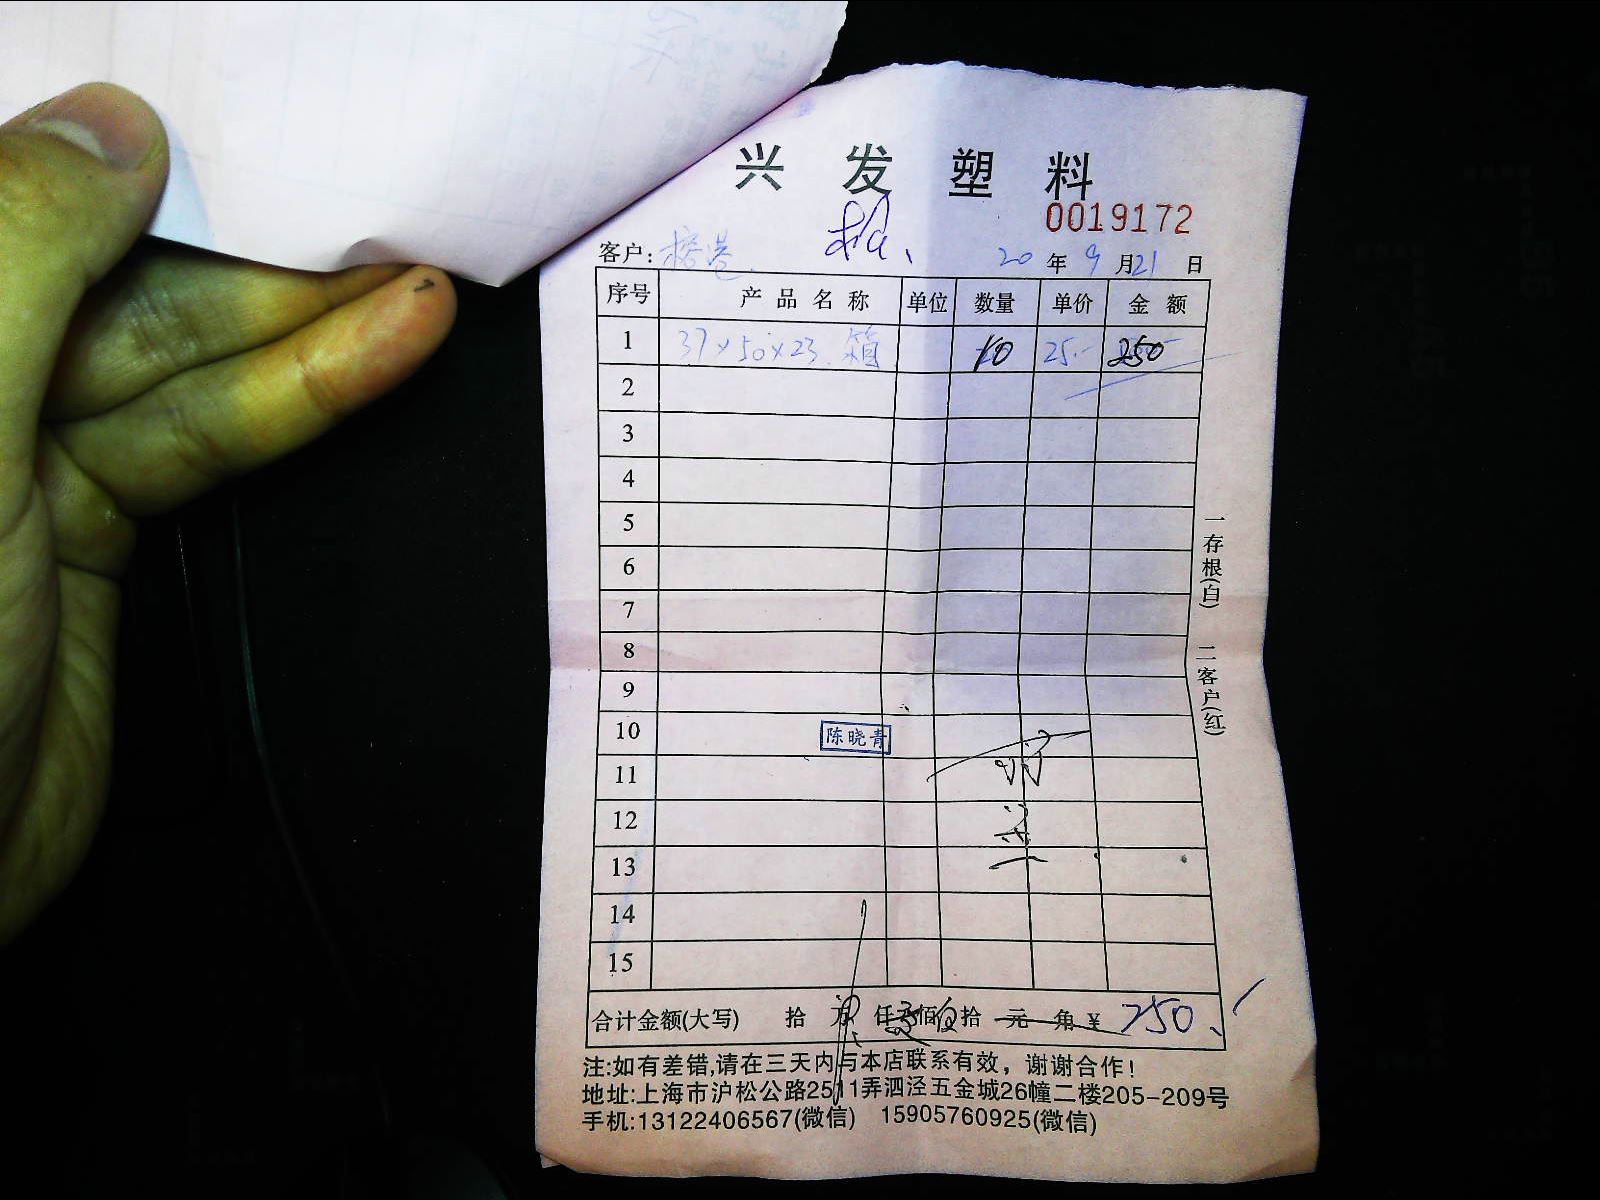 兴发塑料
0019172
客户: 榕港 20年9月21日
序号 产品名称 单位 数量 单价 金额
1 37×50×23 箱 10 25.- 250
2
3
4
5
6
7
8
9
10
陈晓青
11
12
13
14
15
一存根(白) 二客户(红)
合计金额(大写) 拾 万 仟 佰 拾 元 角 ¥ 250.
注:如有差错,请在三天内与本店联系有效，谢谢合作!
地址:上海市沪松公路2511弄泗泾五金城26幢二楼205-209号
手机:13122406567(微信) 15905760925(微信)